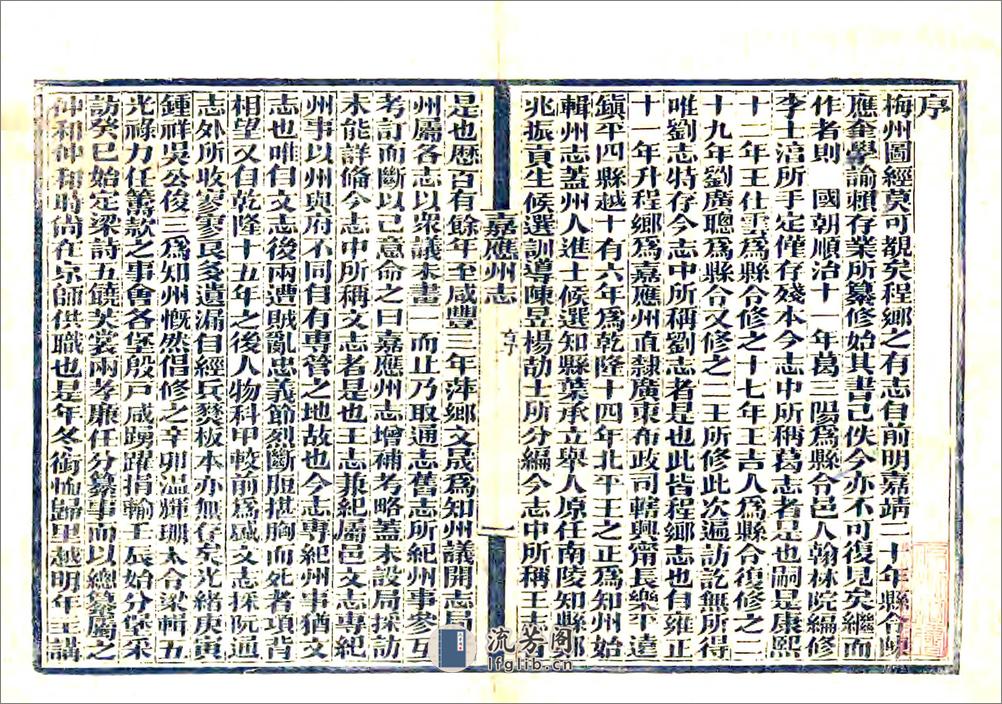 序
梅州圖經莫可覩矣程鄉之有志自前明嘉靖二十年縣令陳
應奎學諭賴存業所纂修始其書已佚今亦不可復見矣繼而
作者則 國朝順治十一年葛三陽爲縣令邑人翰林院編修
李士淳所手定僅存殘本今志中所稱葛志者是也嗣是康熙
十二年王仕雲爲縣令修之十七年王吉人爲縣令復修之二
十九年劉廣聰爲縣令又修之二王所修此次遍訪訖無所得
唯劉志特存今志中所稱劉志者是也此皆程鄉志也有雍正
十一年升程鄉爲嘉應州直隷廣東布政司轄興甯長樂平遠
鎭平四縣越十有六年爲乾隆十四年北平王之正爲知州始
輯州志蓋州人進士候選知縣葉承立舉人原任南陵知縣鄒
兆振貢生候選訓導陳昱楊劼士所分編今志中所稱王志者
嘉應州志 序 一
是也歷百有餘年至咸豐三年萍鄉文晟爲知州議開志局
州屬各志以衆議未畫一而止乃取通志舊志所紀州事參互
考訂而斷以己意命之曰嘉應州志增補考略蓋未設局採訪
未能詳備今志中所稱文志者是也王志兼紀屬邑文志專紀
州事以州與府不同自有專管之地故也今志專紀州事猶文
志也唯自文志後兩遭賊亂忠義節烈斷脰揕胸而死者項背
相望又自乾隆十五年之後人物科甲較前爲盛文志採阮通
志外所收寥寥良多遺漏自經兵燹板本亦無存矣光緒庚寅
鍾祥吳公俊三爲知州慨然倡修之辛卯溫輝珊大令梁輯五
光祿力任籌款之事會各堡殷戸咸踴躍捐輸壬辰始分堡采
訪癸巳始定梁詩五饒芙裳兩孝廉任分纂事而以總纂屬之
仲和仲和時尙在京師供職也是年冬銜恤歸里越明年主講
流芳阁
lfglib.cn